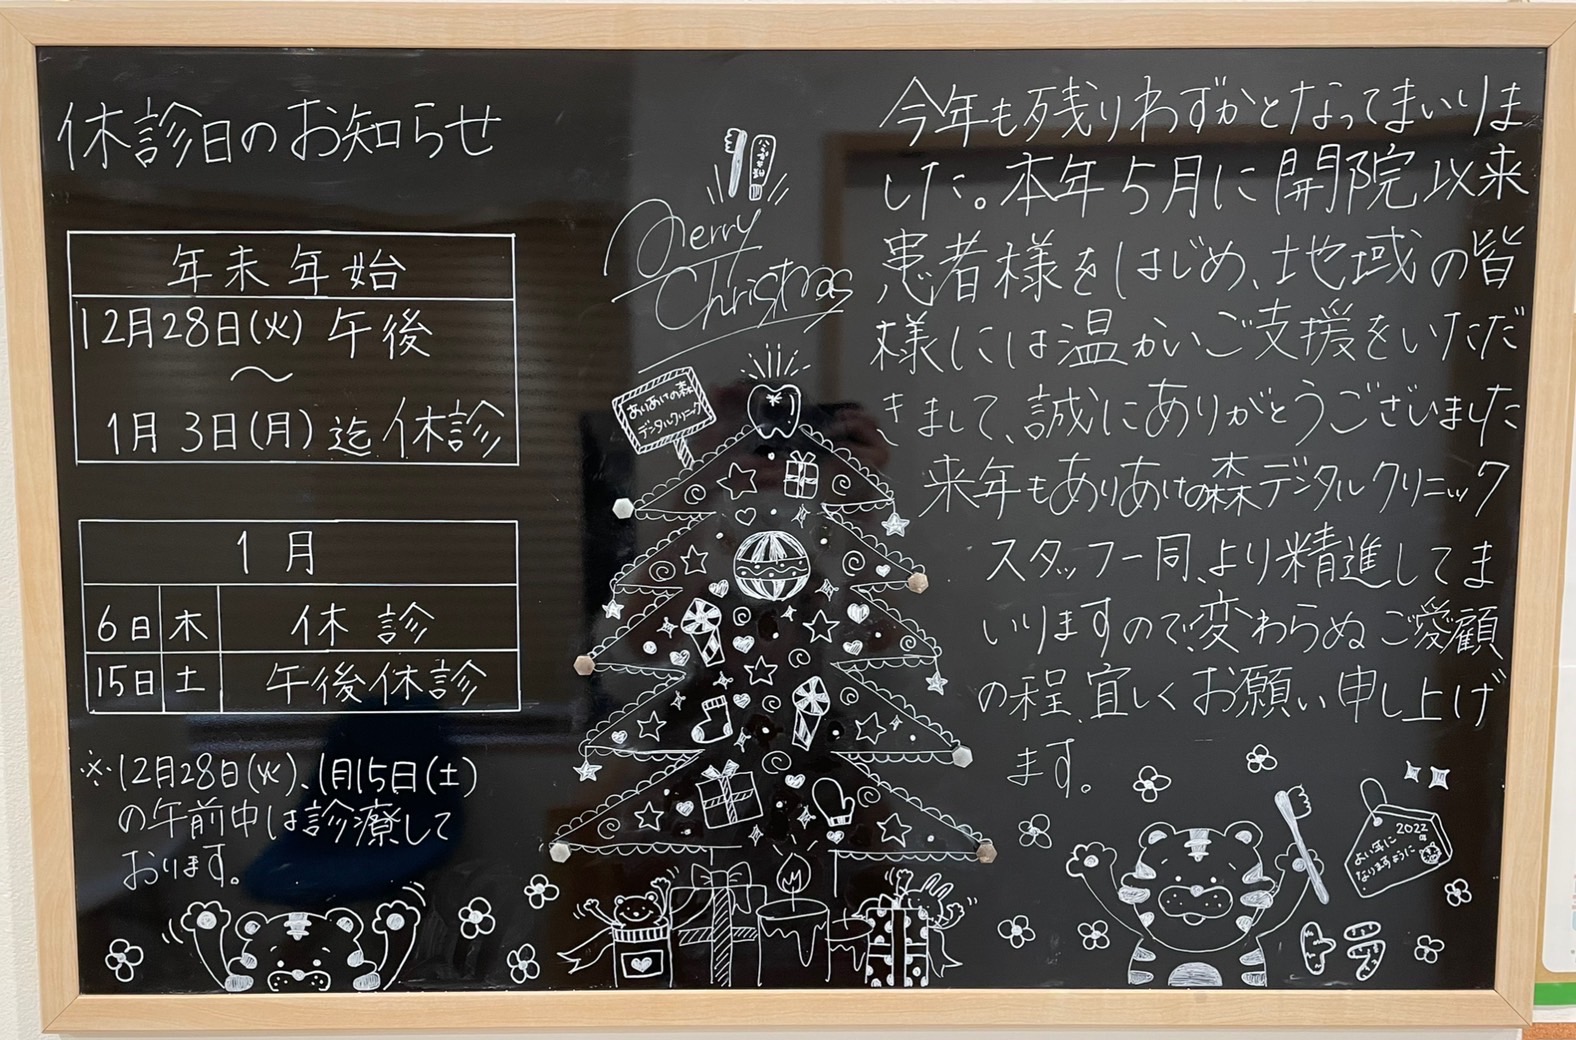 休診日のお知らせ
年末年始
12月28日(火) 午後
〜
1月3日(月)迄休診
1月
6日 木 休診
15日 土 午後休診
※12月28日(火)、1月15日(土)
の午前中は診療して
おります。
Merry
Christmas
ありあけの森
デンタルクリニック
今年も残りわずかとなってまいりま
した。本年5月に開院以来
患者様をはじめ、地域の皆
様には温かいご支援をいただ
きまして、誠にありがとうございました
来年もありあけの森デンタルクリニック
スタッフ一同、より精進してま
いりますので、変わらぬご愛顧
の程、宜しくお願い申し上げ
ます。
2022
年
よい年に
なりますように